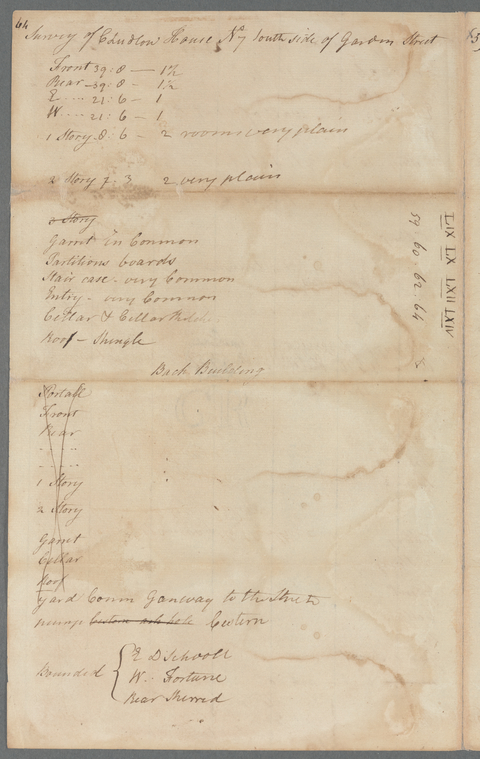 64
Survey of C Ludlow House No 7 South side of Garden Street
Front 39:8 — 1½
Rear 39:8 - 1½
E .... 21:6 - 1
W .... 21:6 - 1
1 Story 8:6 - 2 rooms very plain
2 Story 7:3 2 very plain
3 Story
Garret In Common
Partitions boards
Stair case - very Common
Entry - very Common
Cellar & Cellar
Roof - Shingle
Back Building
Front
Rear
1 Story
2 Story
Garret
Cellar
Roof
Yard Comn Gangway to the Street
pump Cistern ash hole Cistern
Bounded
E D School
W. Fortune
Rear Sherred
LIX LX LXII LXIV
59. 60. 62. 64